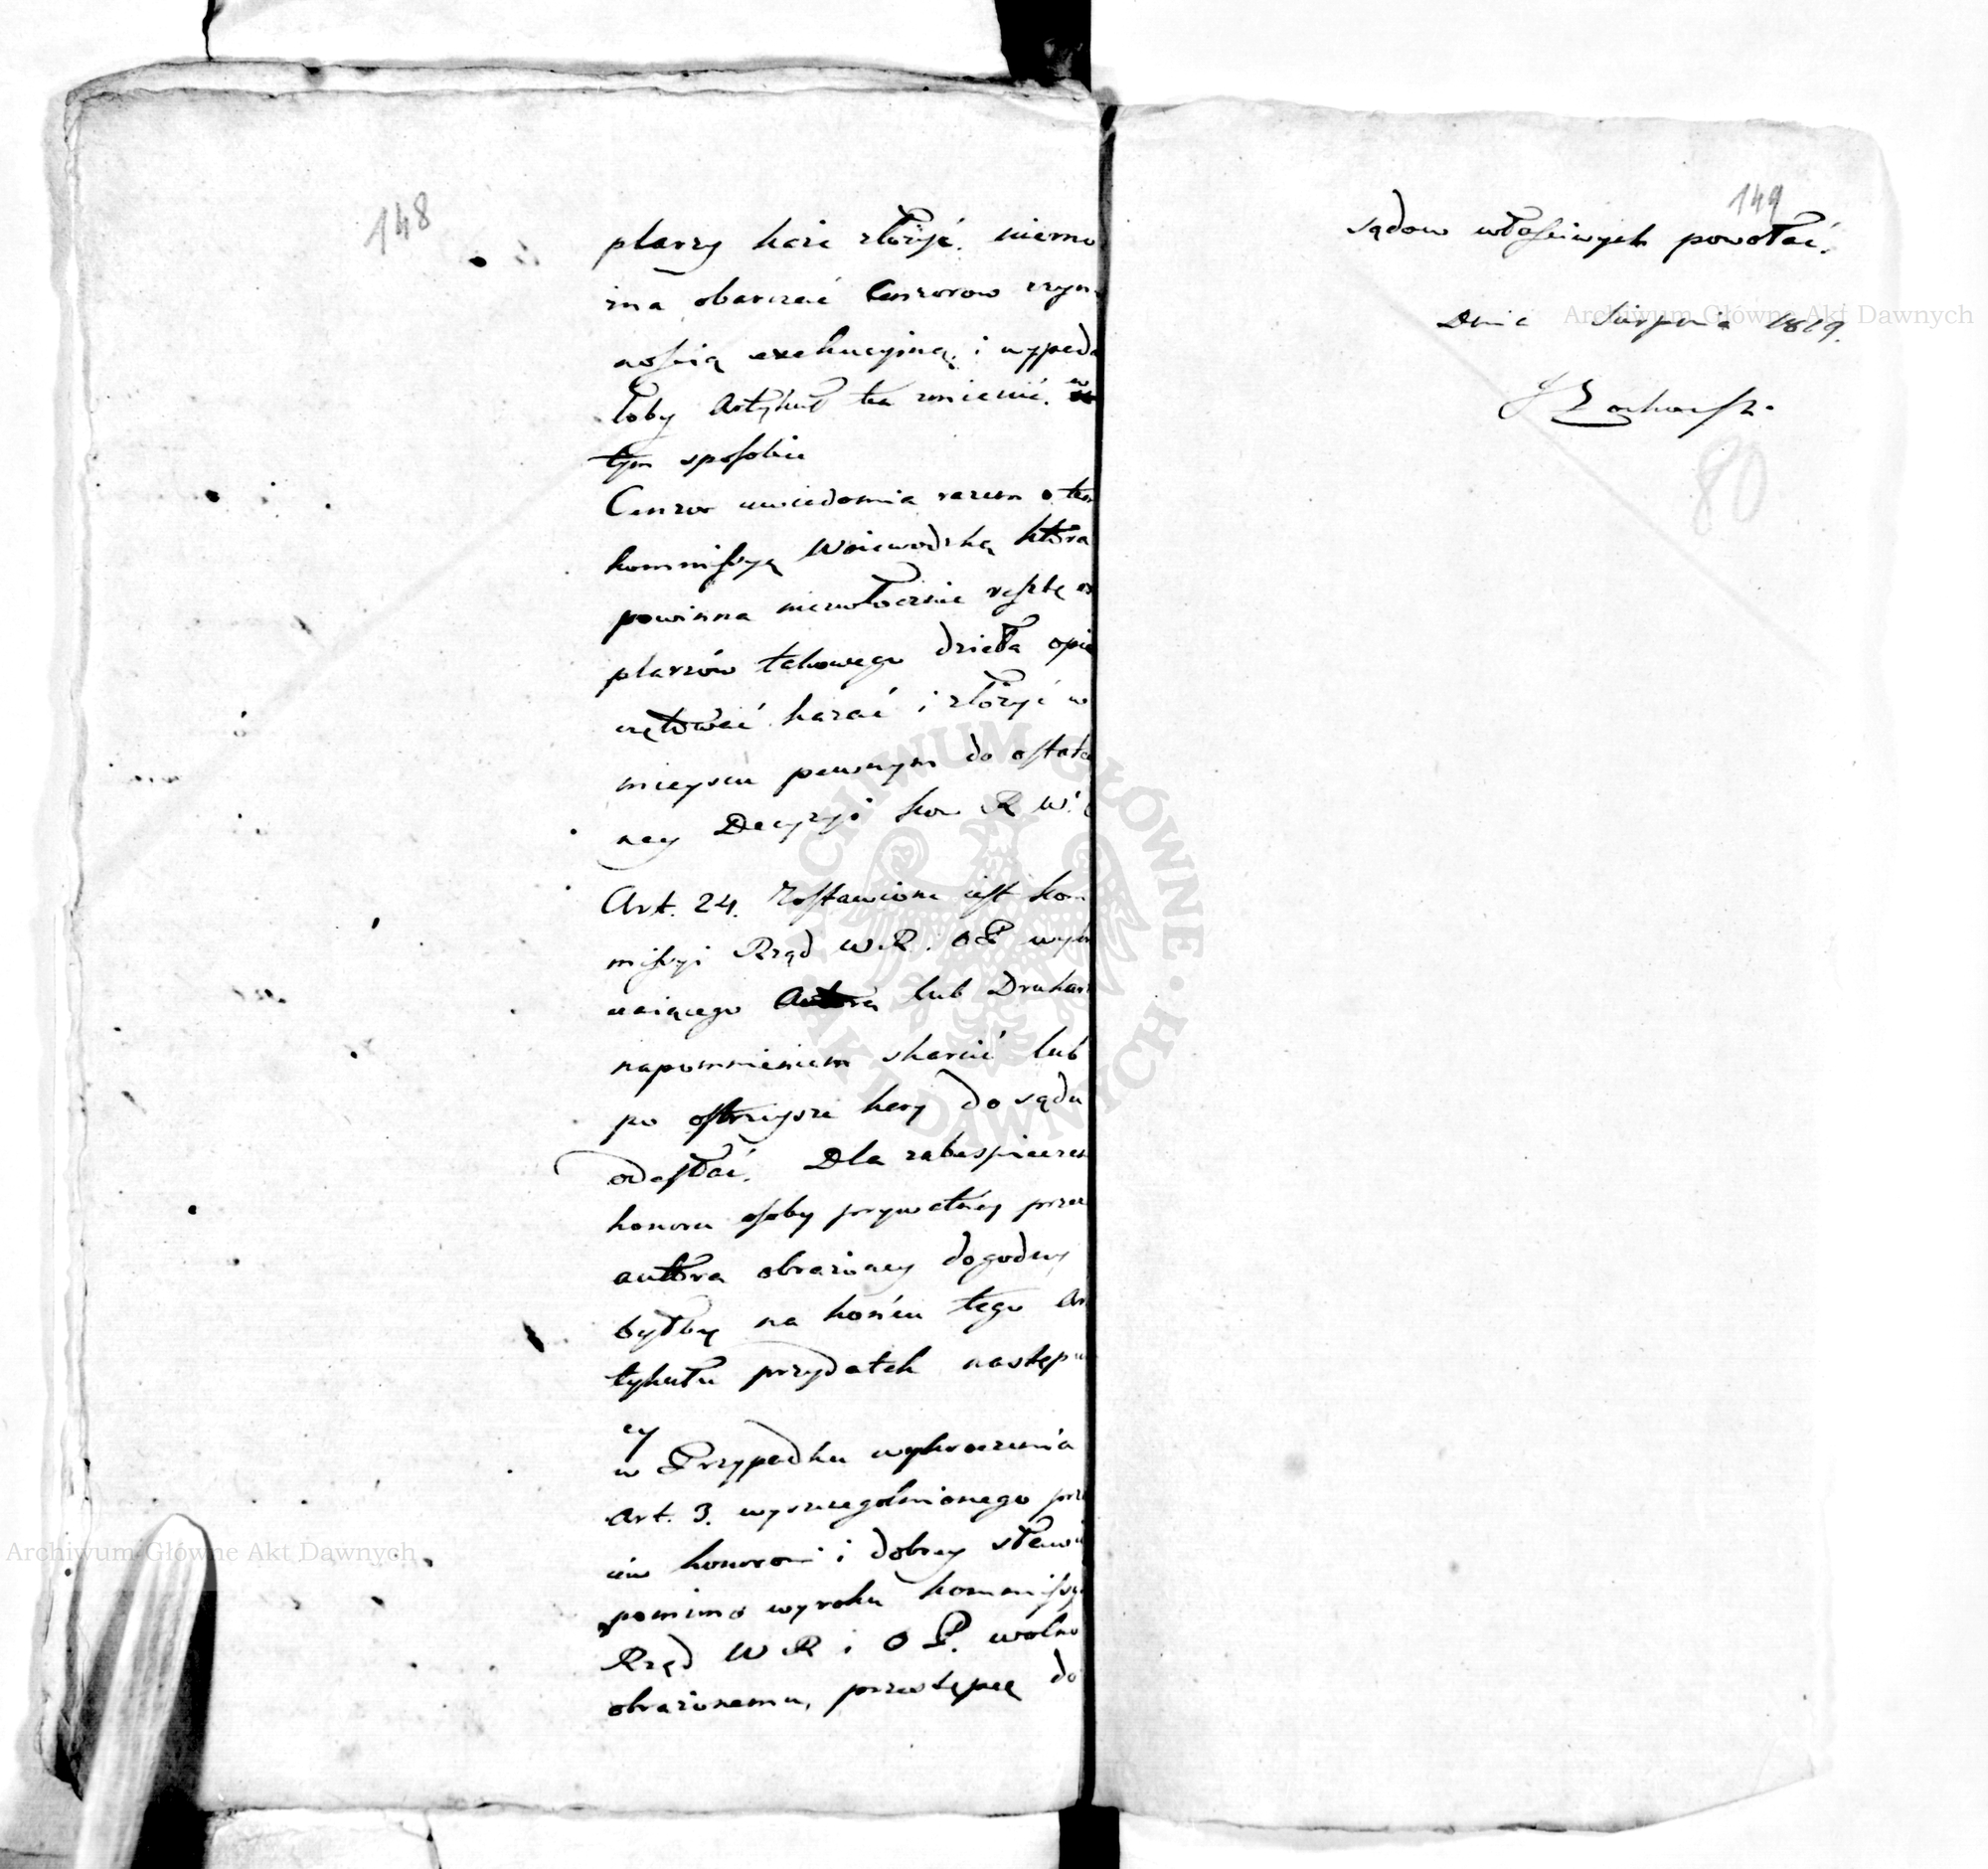 148
plarzy każe złożyć. niemo
żna obarczać Cenzorow czyn
nością exekucyiną, i wypada
łoby Artykuł ten zmienić. w
tym sposobie
Cenzor uwiedomia razem o tem
kommissyą Woiewodzką która
powinna niezwłocznie resztę ex
plarzów takowego dzieła opie
czętować kazać i złożyć w
mieyscu pewnym do ostate
ney Decyzyi kom R W.
Art. 24. Zostawione iest kom
missyi Rząd W.R. OP wykr
uaiącego Autora lub Drukar
napomnieniem skarcić lub
po ostrzeysze kary do sądu
odesłać. Dla zabespiecze
honoru osoby prywatney prze
autora obrażoney dogodny
byłby na końcu tego Ar
tykułu przydatek następu
cy
w Przypadku wykroczenia
Art. 3. wyszczegolnionego prze
ciw honorowi i dobrey sławie
pomimo wyroku kommissyi
Rząd W R i O P. wolno
obrażonemu, przestępcę do
149
sądow właściwych powołać.
Dnia Sierpnia 1819.
80
Archiwum Główne Akt Dawnych
Archiwum Główne Akt Dawnych
ARCHIWUM GŁÓWNE AKT DAWNYCH